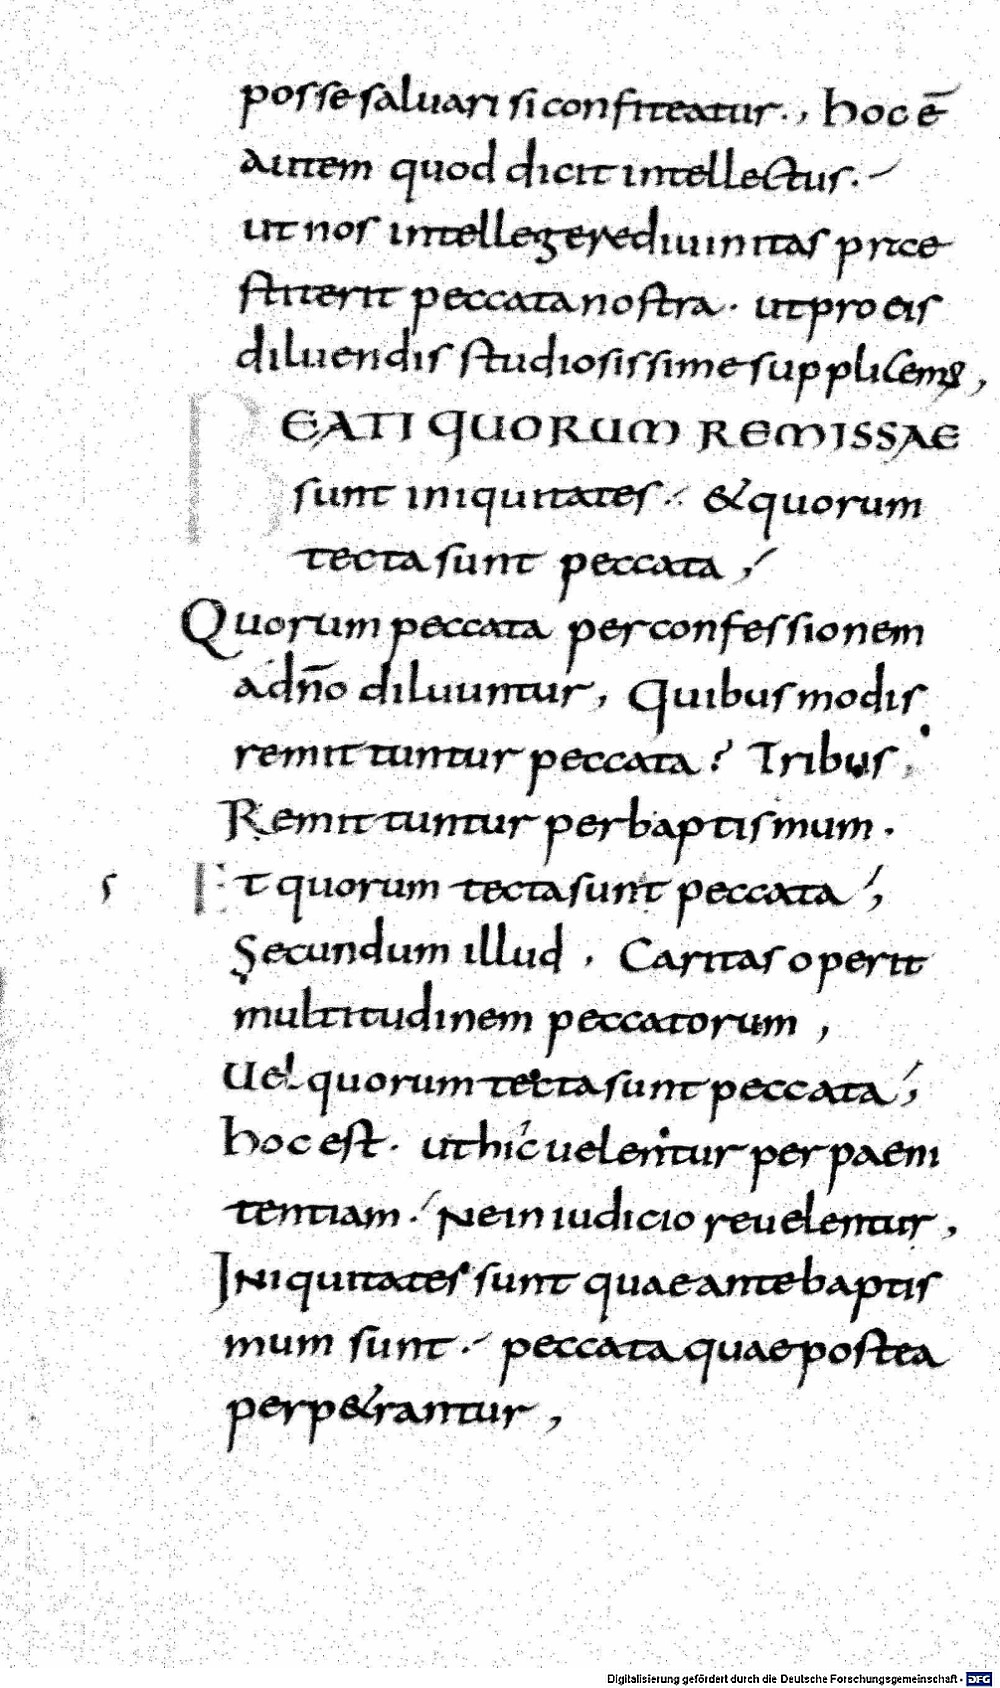 posse saluari si confiteatur., hoc ē
autem quod dicit intellectus.
ut nos intellegere diuinitas price
stiterit peccata nostra. ut pro eis
diluendis studiosissime supplicem;,
BEATI QUORUM REMISSAE
sunt iniquitates. & quorum
tecta sunt peccata,
Quorum peccata per confessionem
ad dn̄o diluuntur, Quibus modis
remittuntur peccata? Tribus.
Remittuntur per baptismum.
s Et quorum tecta sunt peccata,
Secundum illud, Caritas operit
multitudinem peccatorum,
Uel quorum tecta sunt peccata,
hoc est. ut hic uelentur per paeni
tentiam. Ne in iudicio reuelentur,
Iniquitates sunt quae ante baptis
mum sunt. peccata quae postea
perp&rantur,
Digitalisierung gefördert durch die Deutsche Forschungsgemeinschaft - DFG